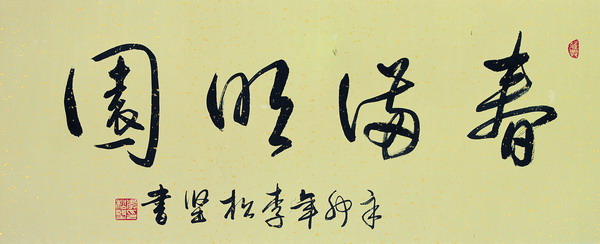 春满明園
辛卯年李松坚書